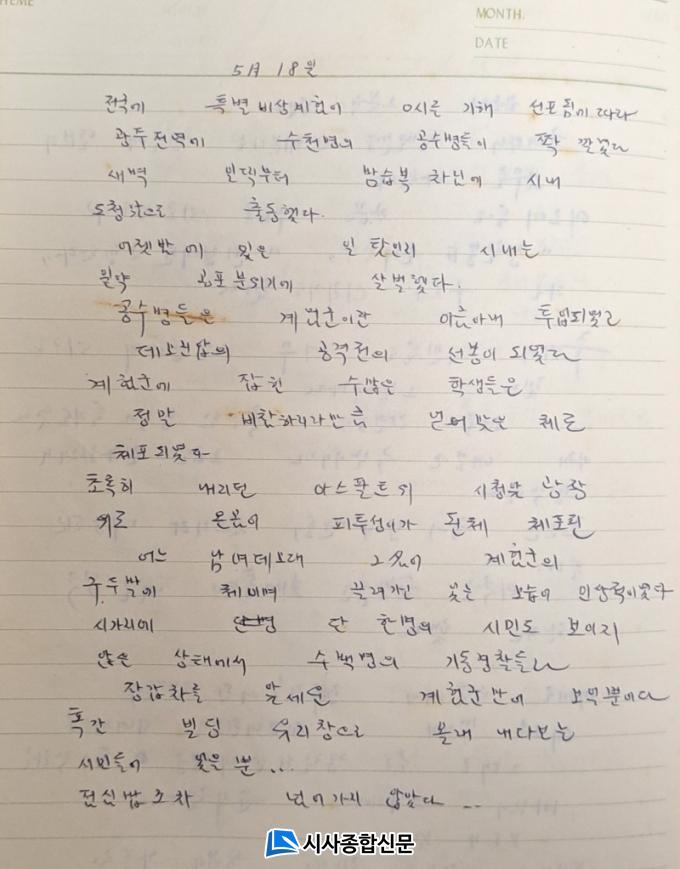 HEME
MONTH.
DATE
5月 18일
전국에 특별비상계엄이 0시를 기해 선포됨에 따라
광주전역에 수천명의 공수병들이 쫙 깔렸다
새벽 일찍부터 밤습복 차림에 시내
도청앞으로 출동했다.
어젯밤에 있은 일 탓인지 시내는
원약 공포분위기에 살벌했다.
공수병들은 계엄군이란 이름아래 투입되었고
데모진압의 공격전의 선봉이 되었다
계엄군에 잡힌 수많은 학생들은
정말 비참하리라만큼 얻어맞은 체로
체포되었다
초록히 내리던 아스팔트의 시청앞 광장
위로 온몸이 피투성이가 된체 체포된
어느 남녀데모대 2名이 계엄군의
구두발에 체이며 끌려가던 모습이 인상적이었다
시가지에 단 한명의 시민도 보이지
않은 상태에서 수백명의 기동경찰들과
장갑차를 앞세운 계엄군만에 보일뿐이다
혹간 빌딩 유리창으로 몰래 내다보는
시민들이 있을 뿐...
점심밥조차 넘어가지 않았다 ...
시사종합신문